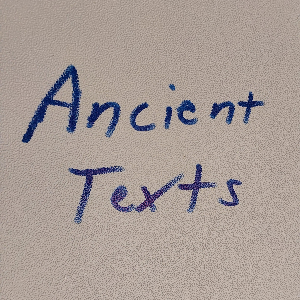 Ancient
Texts